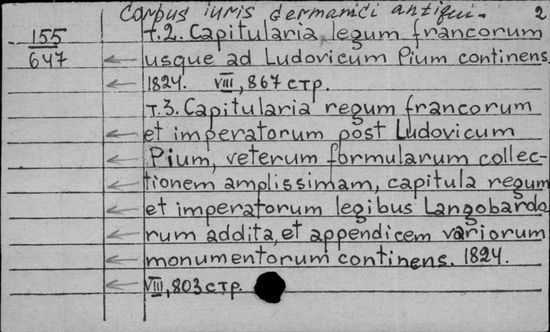 Corpus iuris dermanici antiqui. 2
155
647
т.2. Capitularia legum francorum
usque ad Ludovicum Pium continens.
1824. VIII, 867 стр.
т.3. Capitularia regum francorum
et imperatorum post Ludovicum
Pium, veterum formularum collec-
tionem amplissimam, capitula regum
et imperatorum legibus Langobardo
rum addita, et appendicem variorum
monumentorum continens. 1824.
VIII, 803 стр.